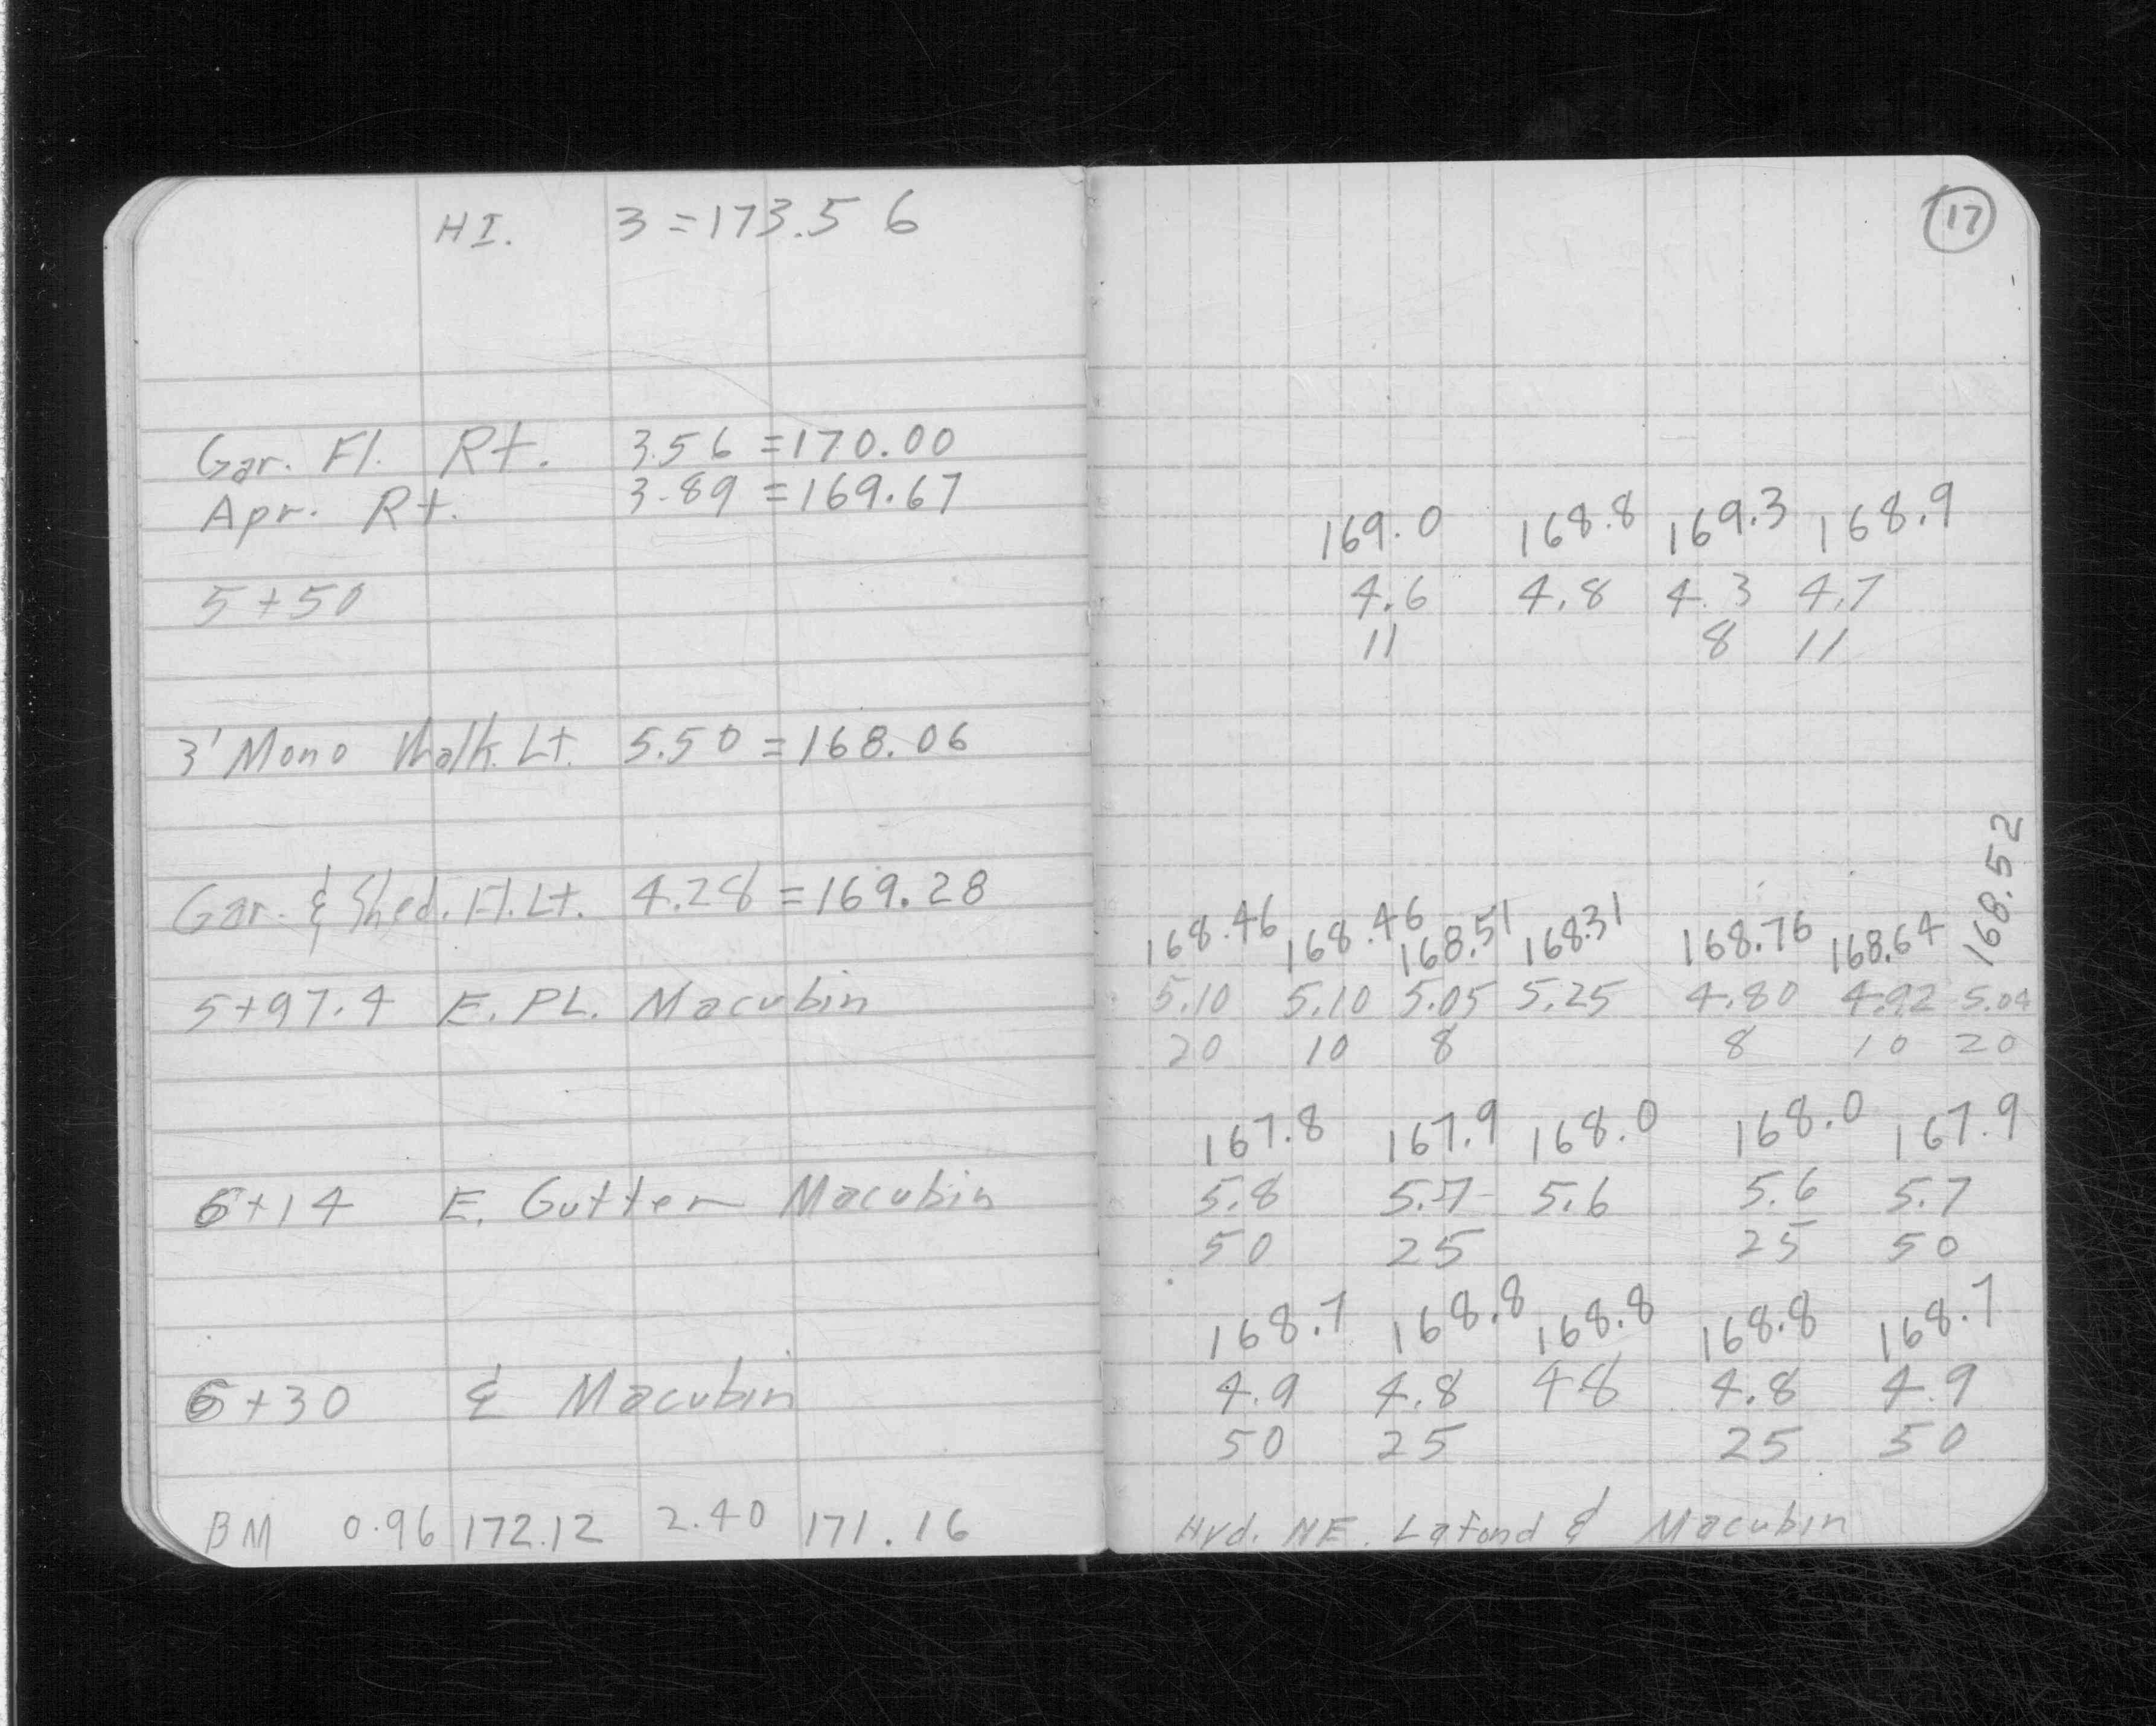 HI. 3 = 173.56
Gar. Fl. Rt. 3.56 = 170.00
Apr. Rt. 3.89 = 169.67
5+50
3' Mono Walk. Lt. 5.50 = 168.06
Gar. & Shed. Fl. Lt. 4.28 = 169.28
5+97.4 E. PL. Macubin
6+14 E. Gutter Macubin
6+30 ℄ Macubin
BM 0.96 172.12 2.40 171.16
17
169.0 168.8 169.3 168.9
4.6 4.8 4.3 4.7
11 8 11
168.46 168.46 168.51 168.31 168.76 168.64 168.52
5.10 5.10 5.05 5.25 4.80 4.92 5.04
20 10 8 8 10 20
167.8 167.9 168.0 168.0 167.9
5.8 5.7 5.6 5.6 5.7
50 25 25 50
168.7 168.8 168.8 168.8 168.7
4.9 4.8 48 4.8 4.9
50 25 25 50
Hyd. NE. Lafond & Macubin